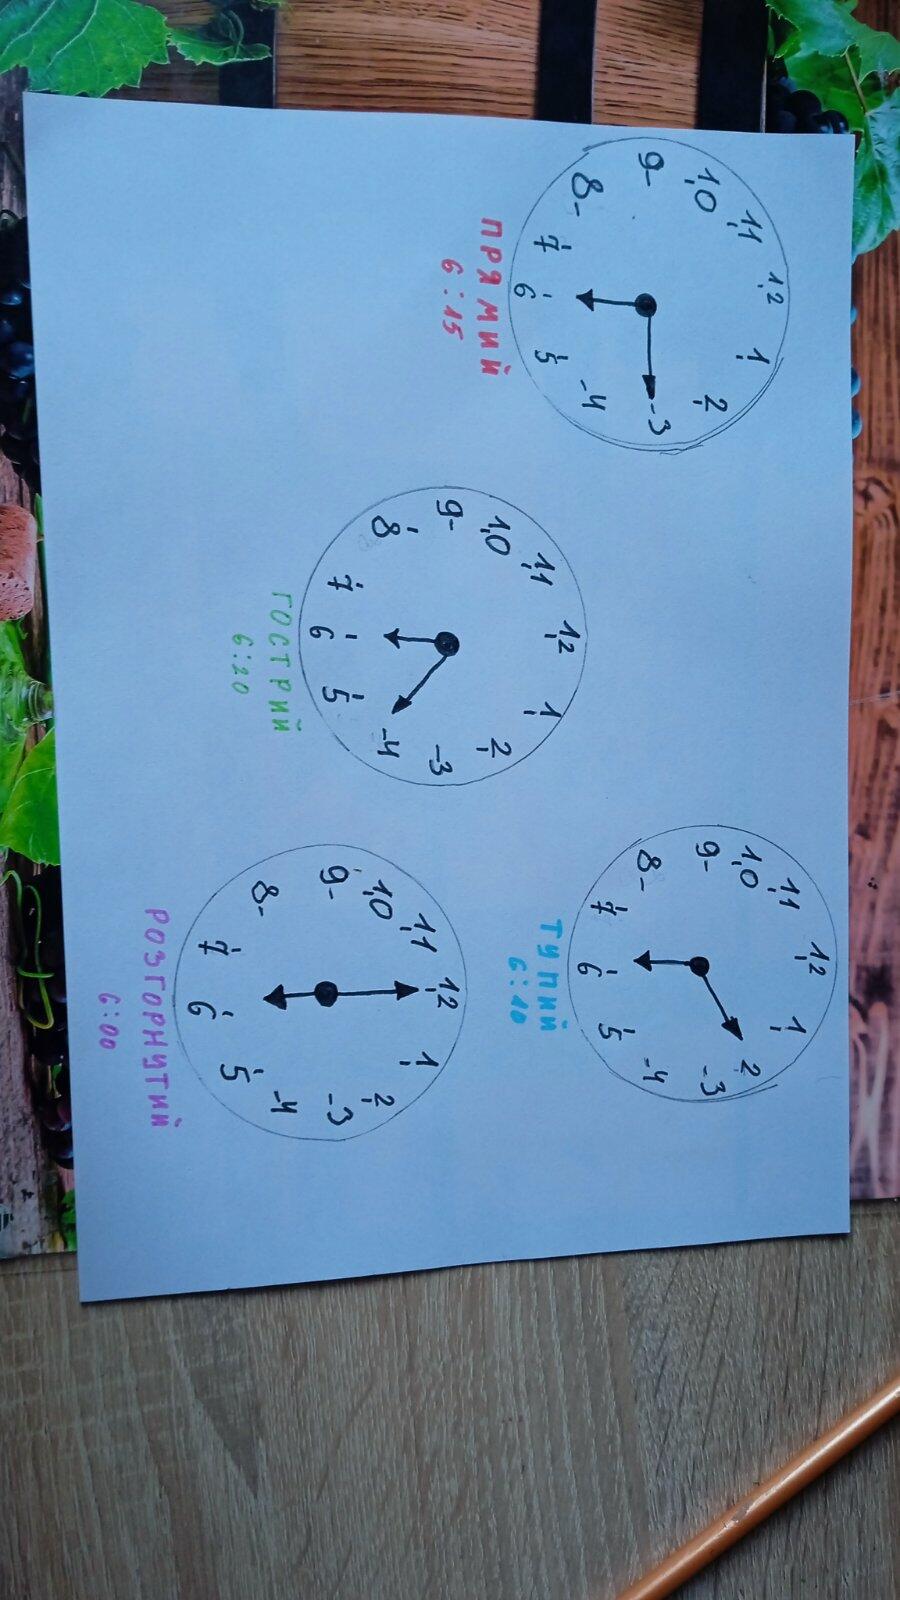 12
11 1
10 2
9 3
8 4
7 5
6
ПРЯМИЙ
6:15
12
11 1
10 2
9 3
8 4
7 5
6
ТУПИЙ
6:10
12
11 1
10 2
9 3
8 4
7 5
6
ГОСТРИЙ
6:20
12
11 1
10 2
9 3
8 4
7 5
6
РОЗГОРНУТИЙ
6:00